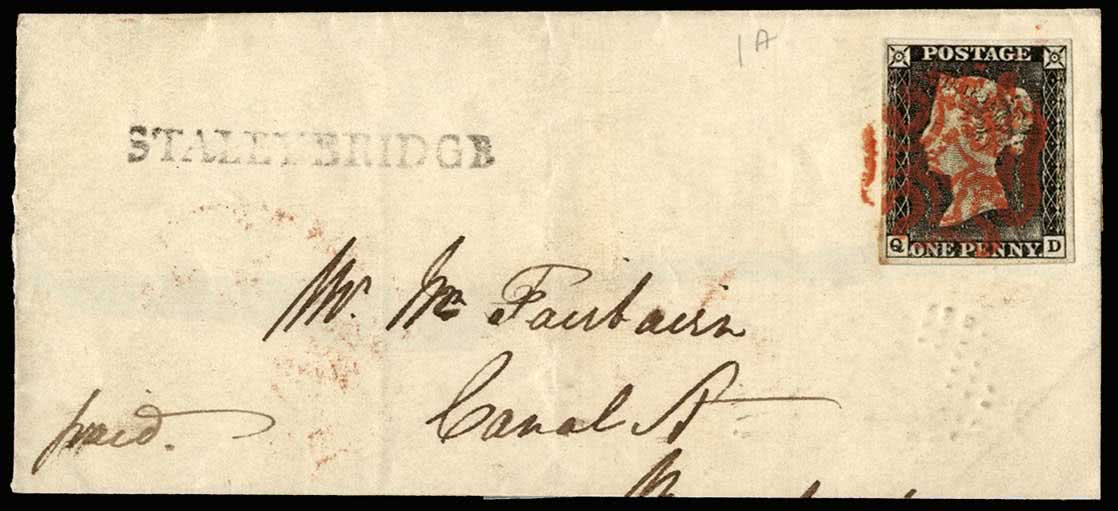 1A
POSTAGE
STALEYBRIDGE
Q ONE PENNY D
Mr. Wm Fairbairn
Canal St
paid.